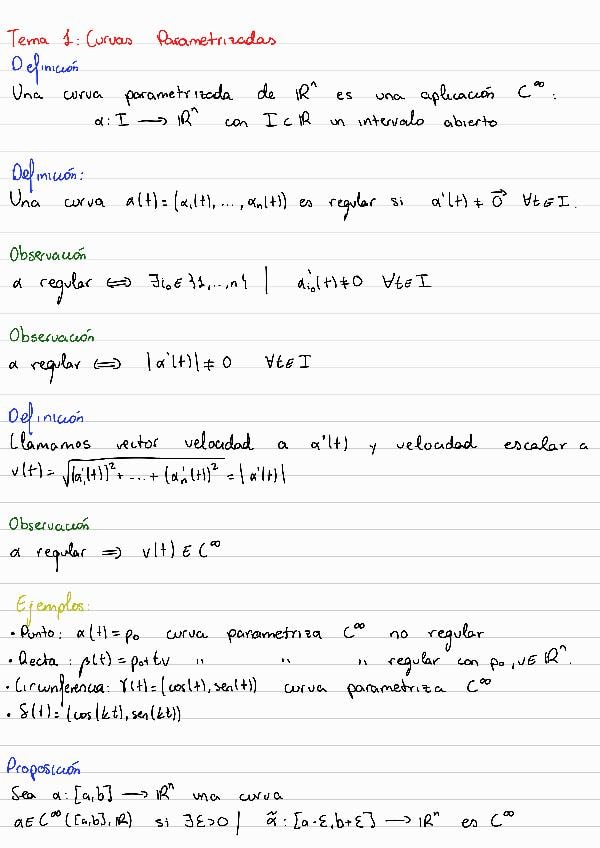 Tema 1: Curvas Parametrizadas
Definición
Una curva parametrizada de ℝⁿ es una aplicación C^∞:
α: I ⟶ ℝⁿ con I ⊂ ℝ un intervalo abierto
Definición:
Una curva α(t) = (α₁(t), ..., αₙ(t)) es regular si α'(t) ≠ 0⃗ ∀t ∈ I.
Observación
α regular ⟺ ∃i₀ ∈ {1, ..., n} | α'ᵢ₀(t) ≠ 0 ∀t ∈ I
Observación
α regular ⟺ |α'(t)| ≠ 0 ∀t ∈ I
Definición
Llamamos vector velocidad a α'(t) y velocidad escalar a
v(t) = √((α₁'(t))² + ... + (αₙ'(t))²) = |α'(t)|
Observación
α regular ⟹ v(t) ∈ C^∞
Ejemplos:
• Punto: α(t) = p₀ curva parametriza C^∞ no regular
• Recta: β(t) = p₀ + tv " " " regular con p₀, v ∈ ℝⁿ.
• Circunferencia: γ(t) = (cos(t), sen(t)) curva parametriza C^∞
• δ(t) = (cos(kt), sen(kt))
Proposición
Sea α: [a,b] ⟶ ℝⁿ una curva
α ∈ C^∞([a,b], ℝ) si ∃ε>0 | α̃: [a-ε, b+ε] ⟶ ℝⁿ es C^∞